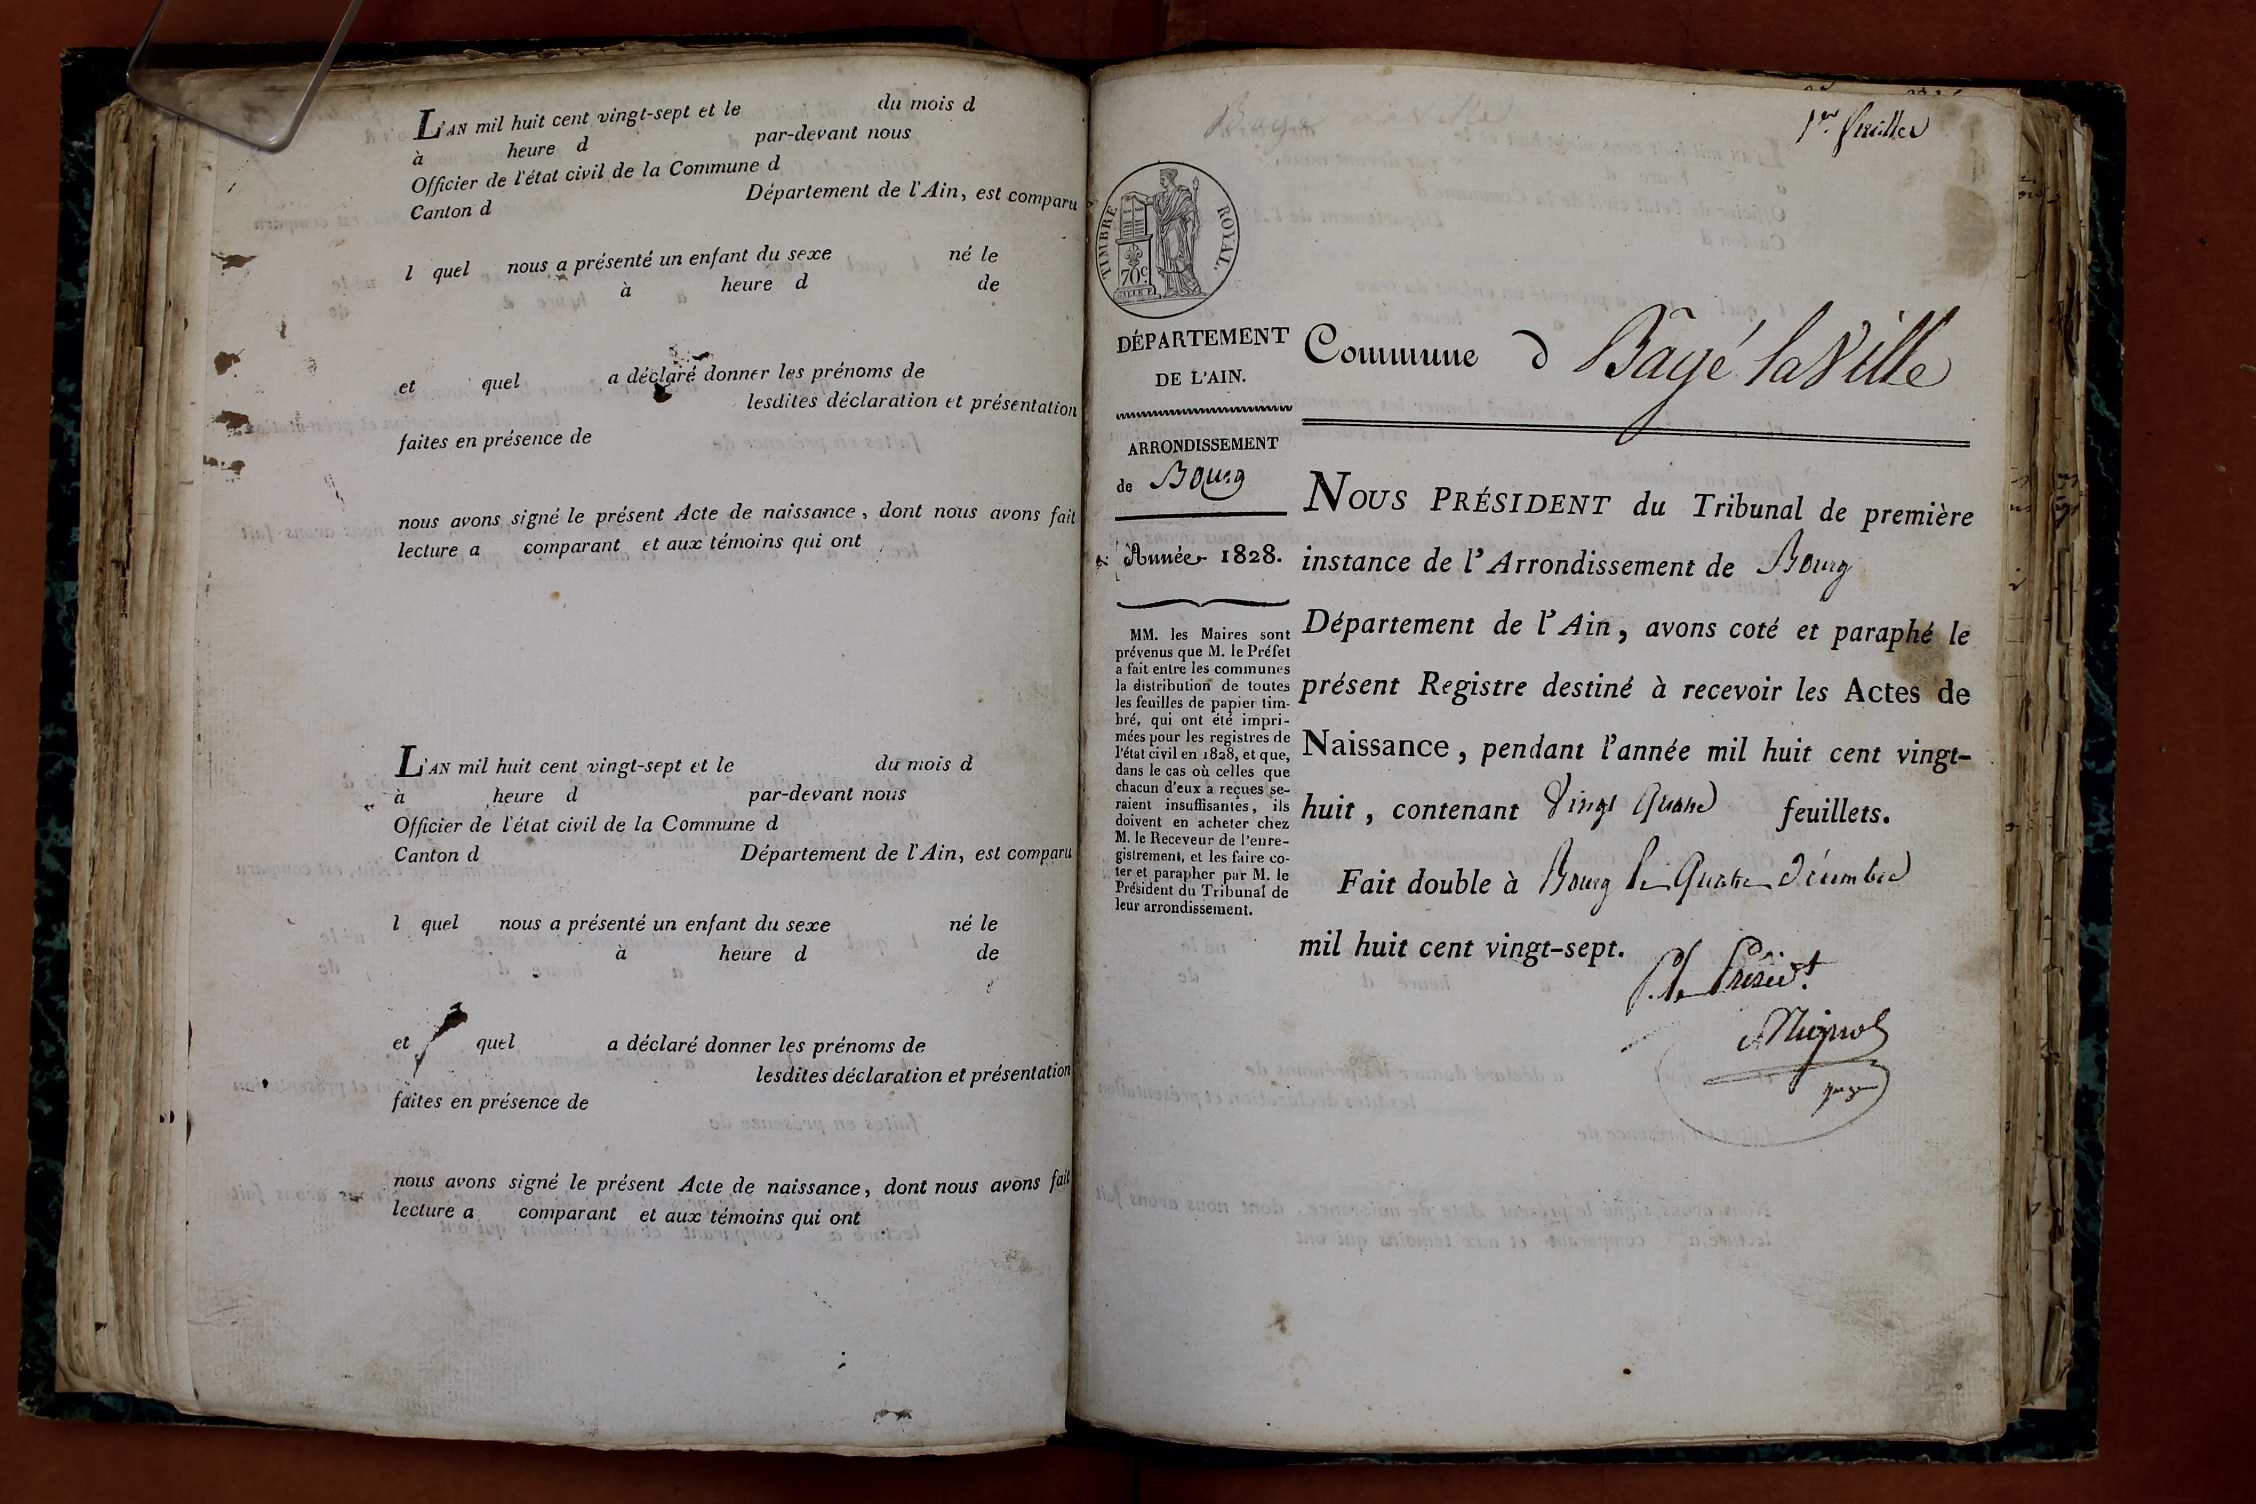 L'AN mil huit cent vingt-sept et le du mois d
à heure d par-devant nous
Officier de l'état civil de la Commune d
Canton d Département de l'Ain, est comparu
l quel nous a présenté un enfant du sexe né le
à heure d de
et quel a déclaré donner les prénoms de
lesdites déclaration et présentation
faites en présence de
nous avons signé le présent Acte de naissance, dont nous avons fait
lecture a comparant et aux témoins qui ont
L'AN mil huit cent vingt-sept et le du mois d
à heure d par-devant nous
Officier de l'état civil de la Commune d
Canton d Département de l'Ain, est comparu
l quel nous a présenté un enfant du sexe né le
à heure d de
et quel a déclaré donner les prénoms de
lesdites déclaration et présentation
faites en présence de
nous avons signé le présent Acte de naissance, dont nous avons fait
lecture a comparant et aux témoins qui ont
1er feuillet
TIMBRE ROYAL.
70c
DÉPARTEMENT
DE L'AIN.
ARRONDISSEMENT
de Bourg
Année 1828.
MM. les Maires sont
prévenus que M. le Préfet
a fait entre les communes
la distribution de toutes
les feuilles de papier tim-
bré, qui ont été impri-
mées pour les registres de
l'état civil en 1828, et que,
dans le cas où celles que
chacun d'eux a reçues se-
raient insuffisantes, ils
doivent en acheter chez
M. le Receveur de l'enre-
gistrement, et les faire co-
ter et parapher par M. le
Président du Tribunal de
leur arrondissement.
Commune d Bagé la Ville
NOUS PRÉSIDENT du Tribunal de première
instance de l'Arrondissement de Bourg
Département de l'Ain, avons coté et paraphé le
présent Registre destiné à recevoir les Actes de
Naissance, pendant l'année mil huit cent vingt-
huit, contenant Vingt quatre feuillets.
Fait double à Bourg le quatre décembre
mil huit cent vingt-sept.
P. le Présidt.